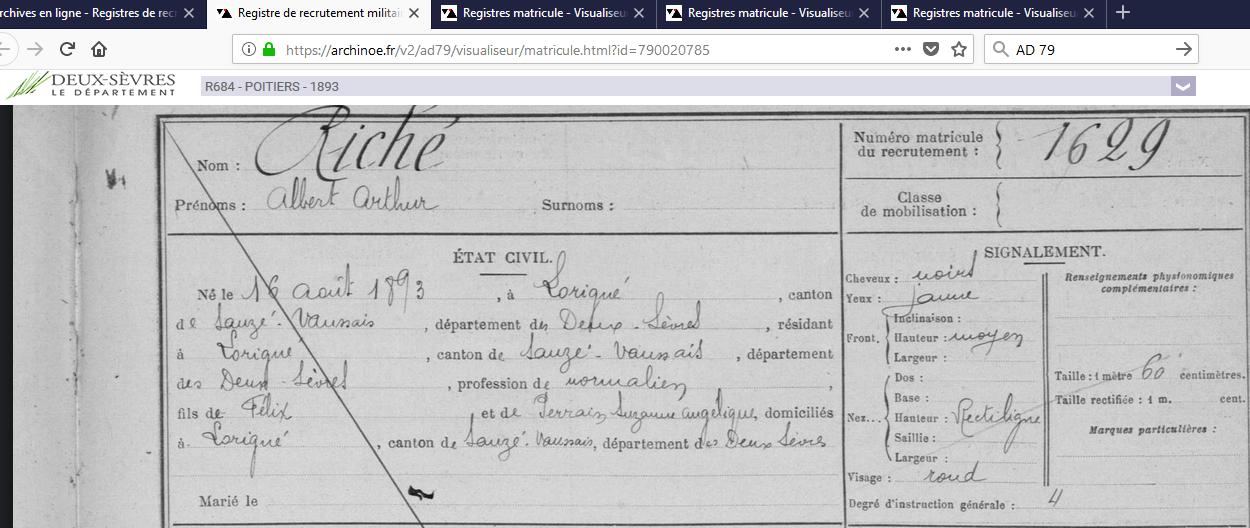 rchives en ligne - Registres de rec
Registre de recrutement militair
Registres matricule - Visualiseu
Registres matricule - Visualiseu
Registres matricule - Visualiseu
https://archinoe.fr/v2/ad79/visualiseur/matricule.html?id=790020785
AD 79
DEUX-SÈVRES
LE DÉPARTEMENT
R684 - POITIERS - 1893
Nom : Riché
Prénoms : Albert Arthur Surnoms :
Numéro matricule
du recrutement : 1629
Classe
de mobilisation :
ÉTAT CIVIL.
Né le 16 août 1893, à Lorigné, canton
de Sauzé-Vaussais, département des Deux-Sèvres, résidant
à Lorigné, canton de Sauzé-Vaussais, département
des Deux-Sèvres, profession de normalien,
fils de Félix et de Perrain Suzanne Angélique, domiciliés
à Lorigné, canton de Sauzé-Vaussais, département des Deux Sèvres
Marié le
SIGNALEMENT.
Cheveux : noirs
Yeux : jaune
Front.
Inclinaison :
Hauteur : moyen
Largeur :
Nez...
Dos :
Base :
Hauteur : Rectiligne
Saillie :
Largeur :
Visage : rond
Degré d'instruction générale : 4
Renseignements physionomiques
complémentaires :
Taille : 1 mètre 60 centimètres.
Taille rectifiée : 1 m. cent.
Marques particulières :